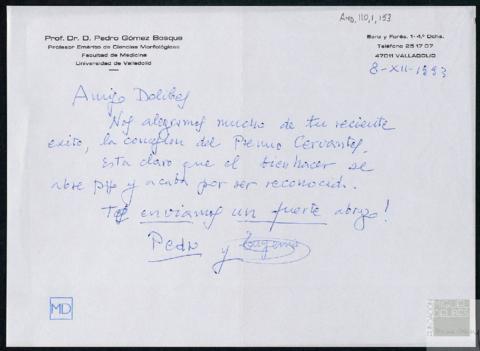 AMD, 110, 1, 153
Prof. Dr. D. Pedro Gómez Bosque
Profesor Emérito de Ciencias Morfológicas
Facultad de Medicina
Universidad de Valladolid
Sanz y Forés, 1-4.º Dcha.
Teléfono 25 17 07
47011 VALLADOLID
8-XII-1993
Amigo Delibes
Nos alegramos mucho de tu reciente
éxito, la concesión del Premio Cervantes.
Está claro que el bien hacer se
abre y acaba por ser reconocido.
Te enviamos un fuerte abrazo!
Pedro y
MD
FUNDACIÓN
MIGUEL
DELIBES